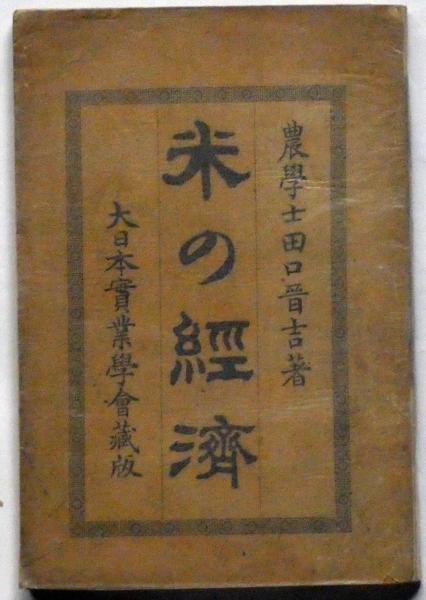 農學士田口晋吉著
米の經濟
大日本實業學會藏版